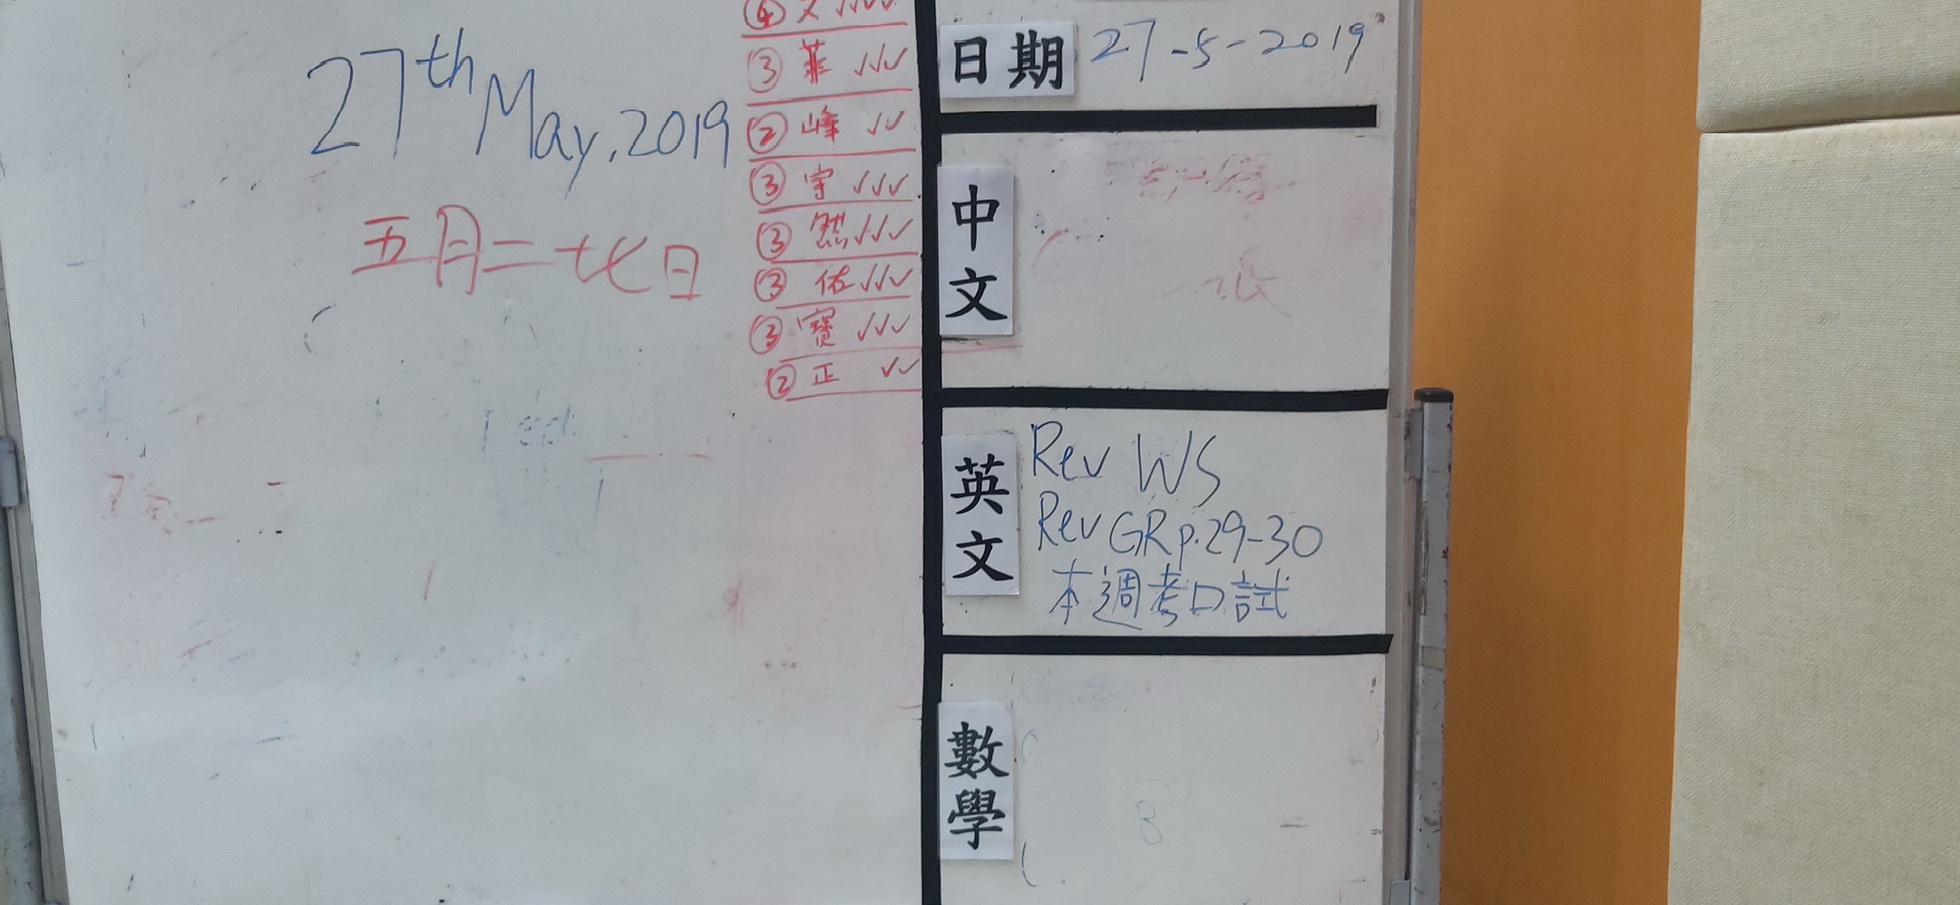 27th May, 2019
五月二十七日
④ 文 ✓✓✓✓
③ 菲 ✓✓✓
② 峰 ✓✓
③ 宇 ✓✓✓
③ 然 ✓✓✓
③ 佑 ✓✓✓
③ 寶 ✓✓✓
② 正 ✓✓
日期 27-5-2019
中文
英文
Rev WS
Rev GR p.29-30
本週考口試
數學